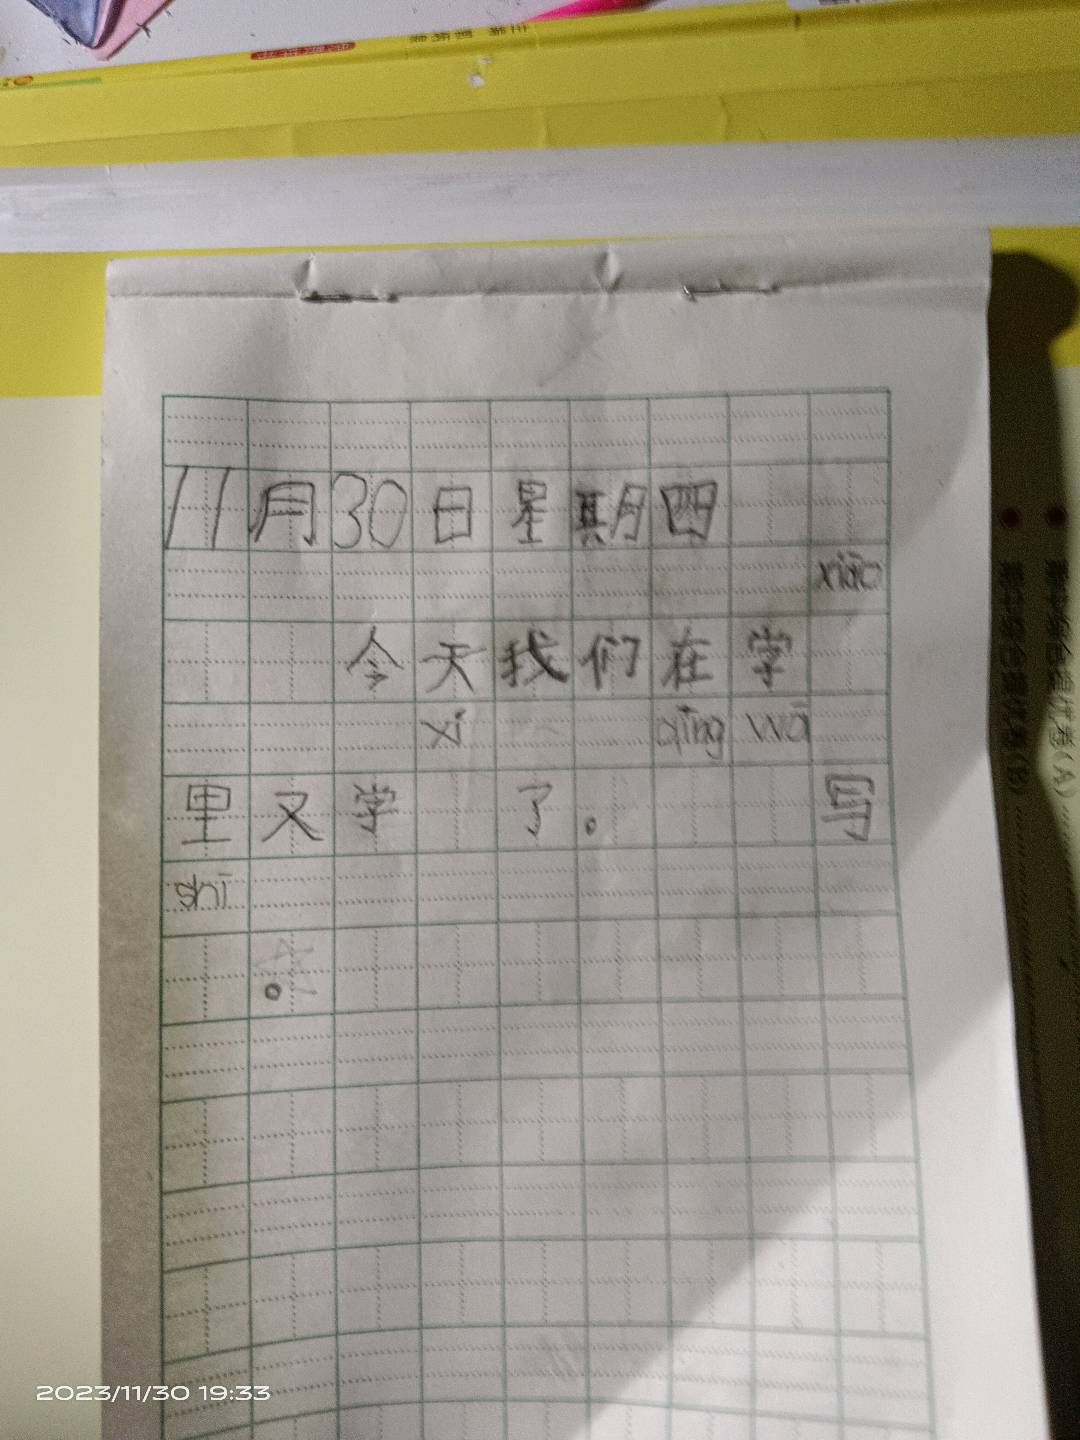 11月30日星期四
xiào
今天我们在学
xí qīng wā
里又学 了。 写
shī
。
2023/11/30 19:33